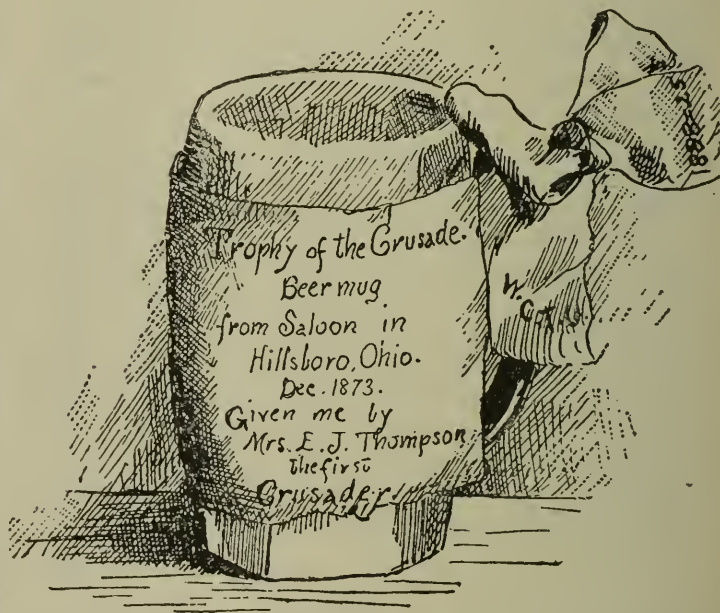 Trophy of the Crusade.
Beer mug
from Saloon in
Hillsboro, Ohio.
Dec. 1873.
Given me by
Mrs. E. J. Thompson
the first
Crusader.
W.